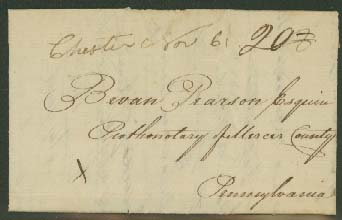 Chester Nov 61 20
Bevan Pearson Esquire
Prothonotary of Mercer County
X
Pennsylvania